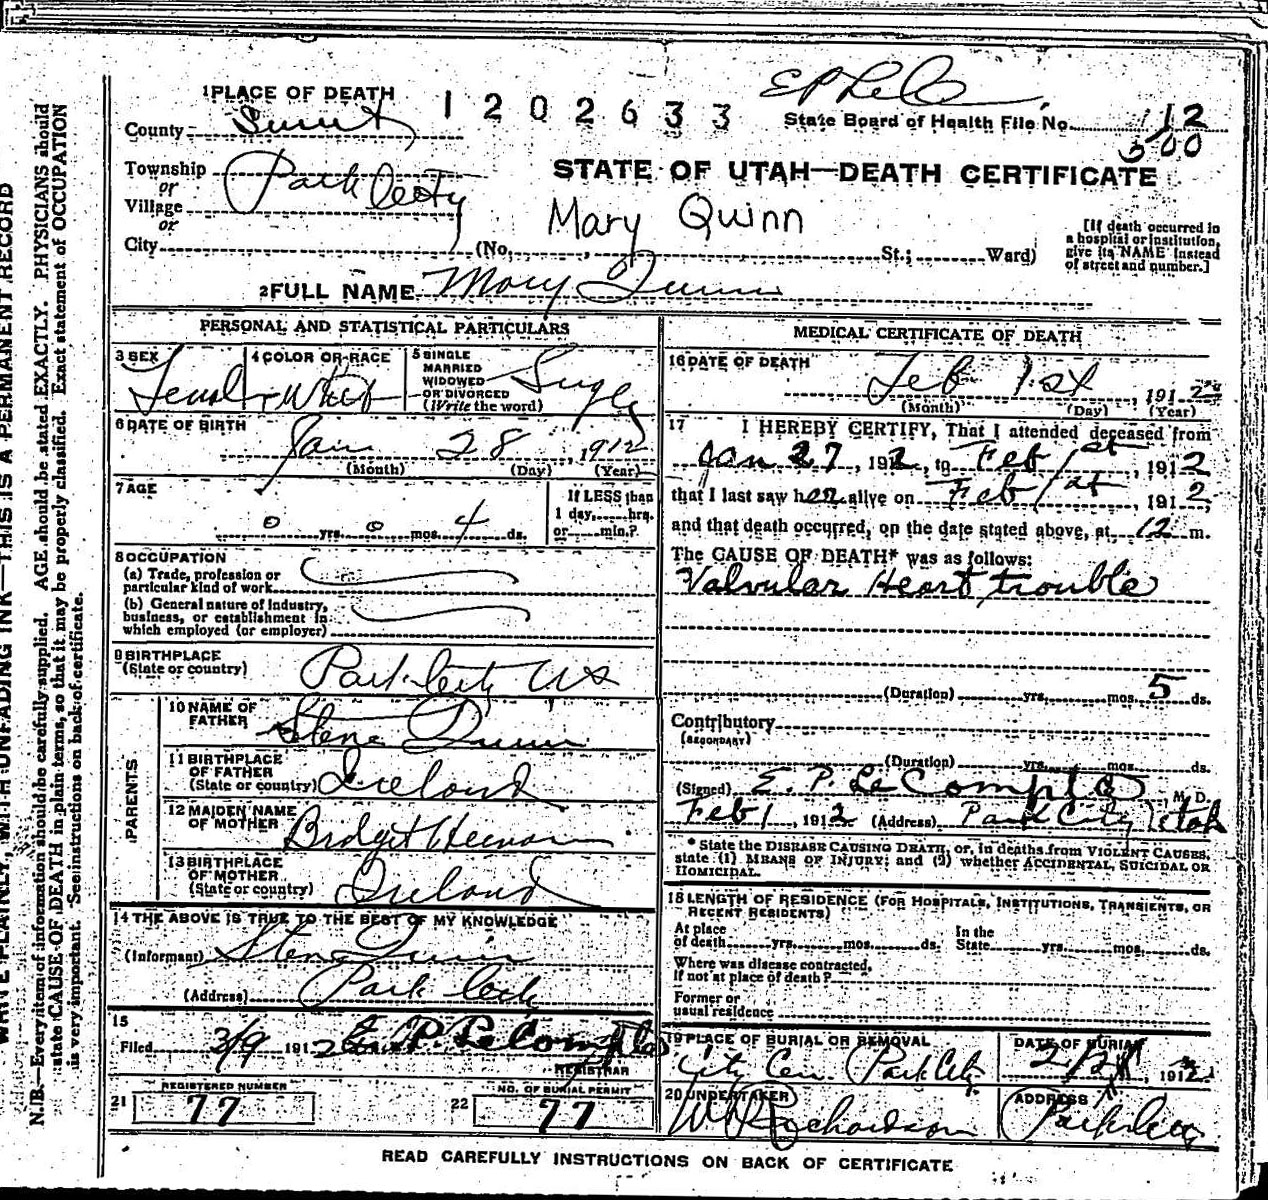 1 PLACE OF DEATH
1202633
State Board of Health File No. 112
County Summit
500
STATE OF UTAH—DEATH CERTIFICATE
Township
or
Village
or
Park City
Mary Quinn
City (No. , St.; Ward)
[If death occurred in a hospital or institution, give its NAME instead of street and number.]
2 FULL NAME Mary Quinn
PERSONAL AND STATISTICAL PARTICULARS
3 SEX
4 COLOR OR RACE White
5 SINGLE
MARRIED
WIDOWED
OR DIVORCED
(Write the word)
6 DATE OF BIRTH
Jan 28, 1912
(Month) (Day) (Year)
7 AGE
0 yrs. 0 mos. 4 ds.
If LESS than
1 day, hrs.
or min.?
8 OCCUPATION
(a) Trade, profession or
particular kind of work
(b) General nature of industry,
business, or establishment in
which employed (or employer)
9 BIRTHPLACE
(State or country)
Park City
PARENTS
10 NAME OF
FATHER
Quinn
11 BIRTHPLACE
OF FATHER
(State or country) Ireland
12 MAIDEN NAME
OF MOTHER
Bridget
13 BIRTHPLACE
OF MOTHER
(State or country) Ireland
14 THE ABOVE IS TRUE TO THE BEST OF MY KNOWLEDGE
(Informant) Quinn
(Address) Park City
15
Filed 3/9 1912 E. P. Le Compte
REGISTRAR
REGISTERED NUMBER
21 77
NO. OF BURIAL PERMIT
22 77
MEDICAL CERTIFICATE OF DEATH
16 DATE OF DEATH
Feb 1st, 1912
(Month) (Day) (Year)
17 I HEREBY CERTIFY, That I attended deceased from
Jan 27, 1912, to Feb 1st, 1912
that I last saw her alive on Feb 1st, 1912,
and that death occurred, on the date stated above, at 12 m.
The CAUSE OF DEATH* was as follows:
Valvular Heart trouble
(Duration) yrs. mos. 5 ds.
Contributory
(SECONDARY)
(Duration) yrs. mos. ds.
(Signed) E. P. Le Compte M. D.
Feb 1, 1912 (Address) Park City Utah
* State the DISEASE CAUSING DEATH, or, in deaths from VIOLENT CAUSES,
state (1) MEANS OF INJURY; and (2) whether ACCIDENTAL, SUICIDAL OR
HOMICIDAL.
18 LENGTH OF RESIDENCE (FOR HOSPITALS, INSTITUTIONS, TRANSIENTS, OR
RECENT RESIDENTS)
At place
of death yrs. mos. ds.
In the
State yrs. mos. ds.
Where was disease contracted,
if not at place of death?
Former or
usual residence
19 PLACE OF BURIAL OR REMOVAL
City Cem. Park City
DATE OF BURIAL
1912
20 UNDERTAKER
Richardson
ADDRESS
Park City
READ CAREFULLY INSTRUCTIONS ON BACK OF CERTIFICATE
WRITE PLAINLY, WITH UNFADING INK—THIS IS A PERMANENT RECORD
N.B.—Every item of information should be carefully supplied. AGE should be stated EXACTLY. PHYSICIANS should
state CAUSE OF DEATH in plain terms, so that it may be properly classified. Exact statement of OCCUPATION
is very important. See instructions on back of certificate.